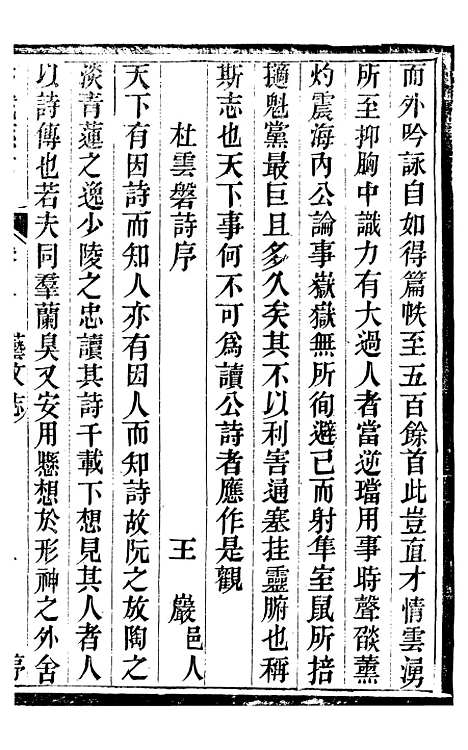 而外吟詠自如得篇帙至五百餘首此豈直才情雲湧
所至抑胸中識力有大過人者當逆璫用事時聲燄薰
灼震海內公論事嶽嶽無所徇避已而射隼室鼠所掊
擿魁黨最巨且多久矣其不以利害通塞挂靈腑也稱
斯志也天下事何不可爲讀公詩者應作是觀
杜雲磐詩序 王巖邑人
天下有因詩而知人亦有因人而知詩故阮之放陶之
淡青蓮之逸少陵之忠讀其詩千載下想見其人者人
以詩傳也若夫同羣蘭臭又安用懸想於形神之外舍
藝文志 序